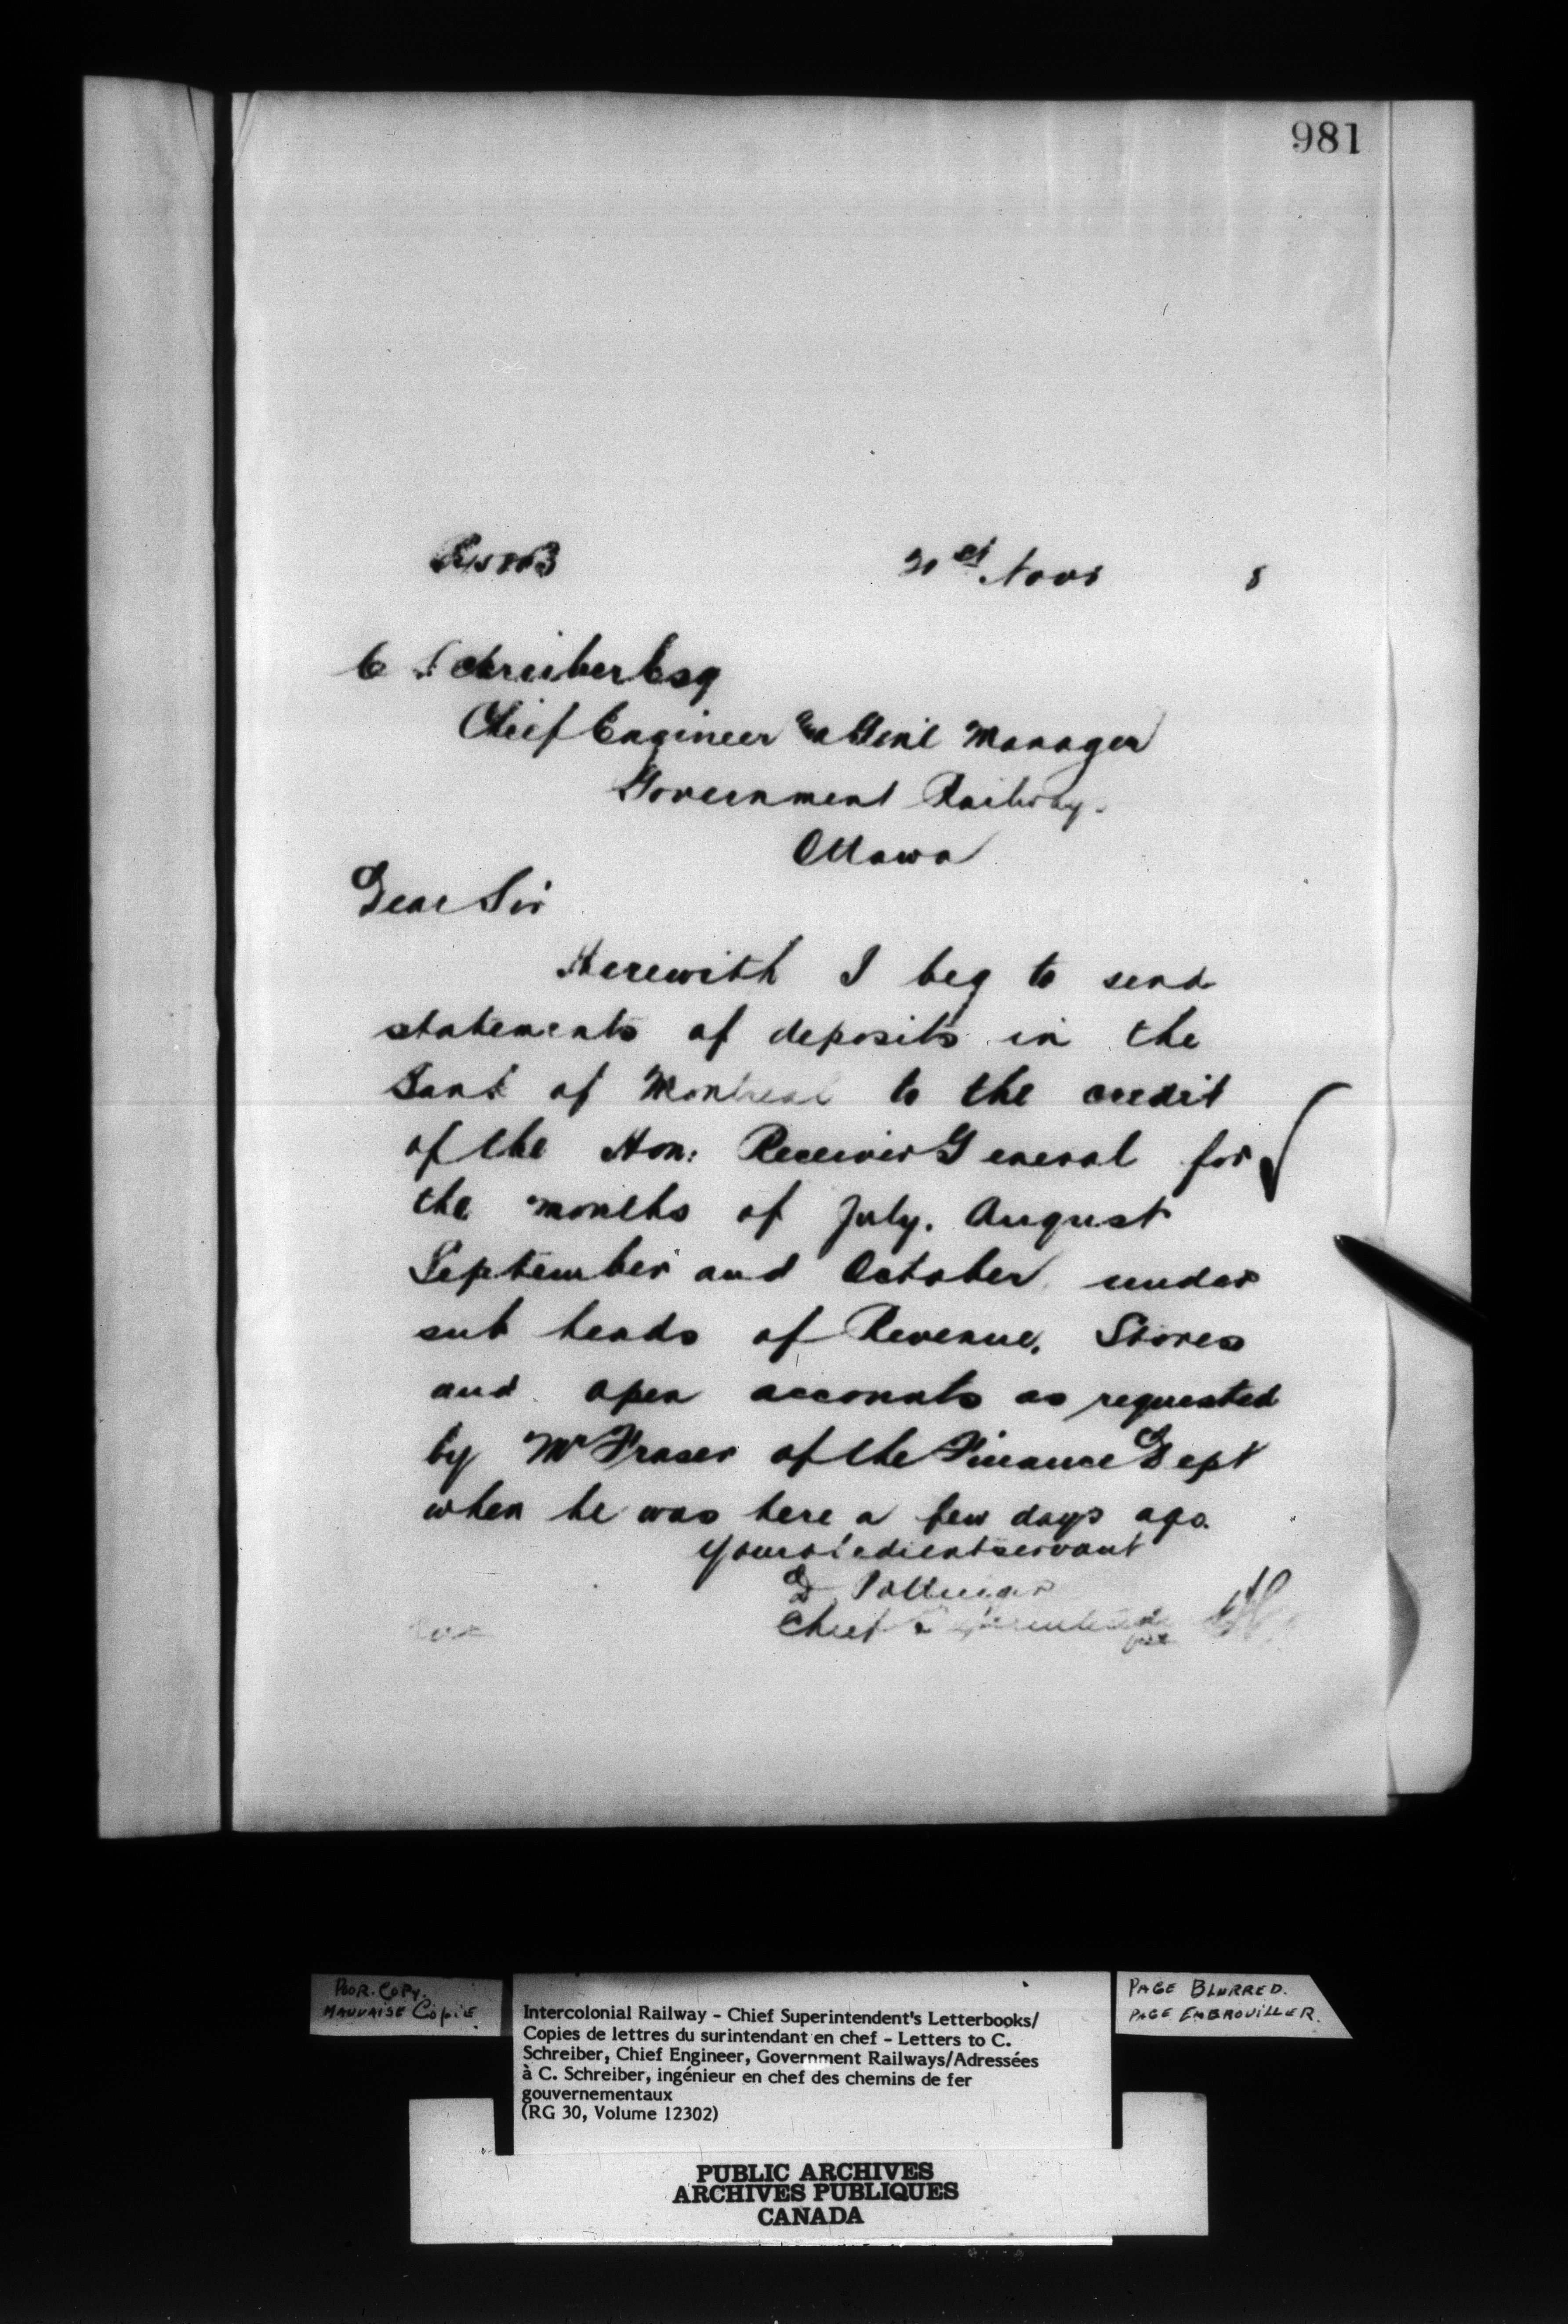 981
30th Novr 8
C Schreiber Esq
Chief Engineer & Genl Manager
Government Railway.
Ottawa
Dear Sir
Herewith I beg to send
statements of deposits in the
Bank of Montreal to the credit
of the Hon: Receiver General for
the months of July. August
September and October under
sub heads of Revenue, Stores
and open accounts as requested
by Mr Fraser of the Finance Dept
when he was here a few days ago.
Your obedient servant
D. Pottinger
Chief Superintendent
POOR COPY.
MAUVAISE COPIE
Intercolonial Railway - Chief Superintendent's Letterbooks/
Copies de lettres du surintendant en chef - Letters to C.
Schreiber, Chief Engineer, Government Railways/Adressées
à C. Schreiber, ingénieur en chef des chemins de fer
gouvernementaux
(RG 30, Volume 12302)
PAGE BLURRED.
PAGE EMBROUILLER.
PUBLIC ARCHIVES
ARCHIVES PUBLIQUES
CANADA